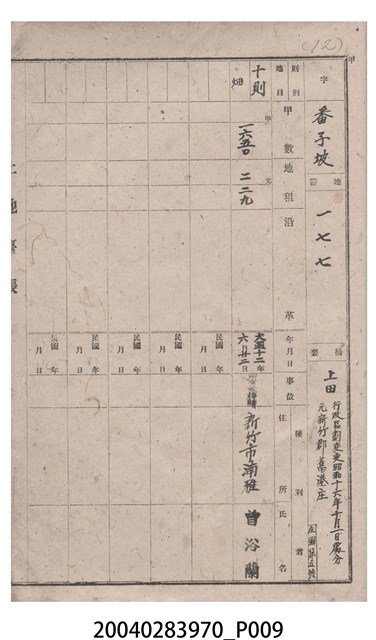 (12)
甲
字 番子坡
地番 一七七
摘要 上田
行政區劃變更昭和十六年十月一日處分
元新竹郡舊港庄
則別
地目
甲數
地租
沿革
年月日
事故
權利者
住所
氏名
十則
畑
甲
一六五〇
二二九
大正十二年
六月廿二日
相續
新竹市湳雅
曾浴蘭
民國 年
月 日
民國 年
月 日
民國 年
月 日
民國 年
月 日
民國 年
月 日
土地臺帳
20040283970_P009